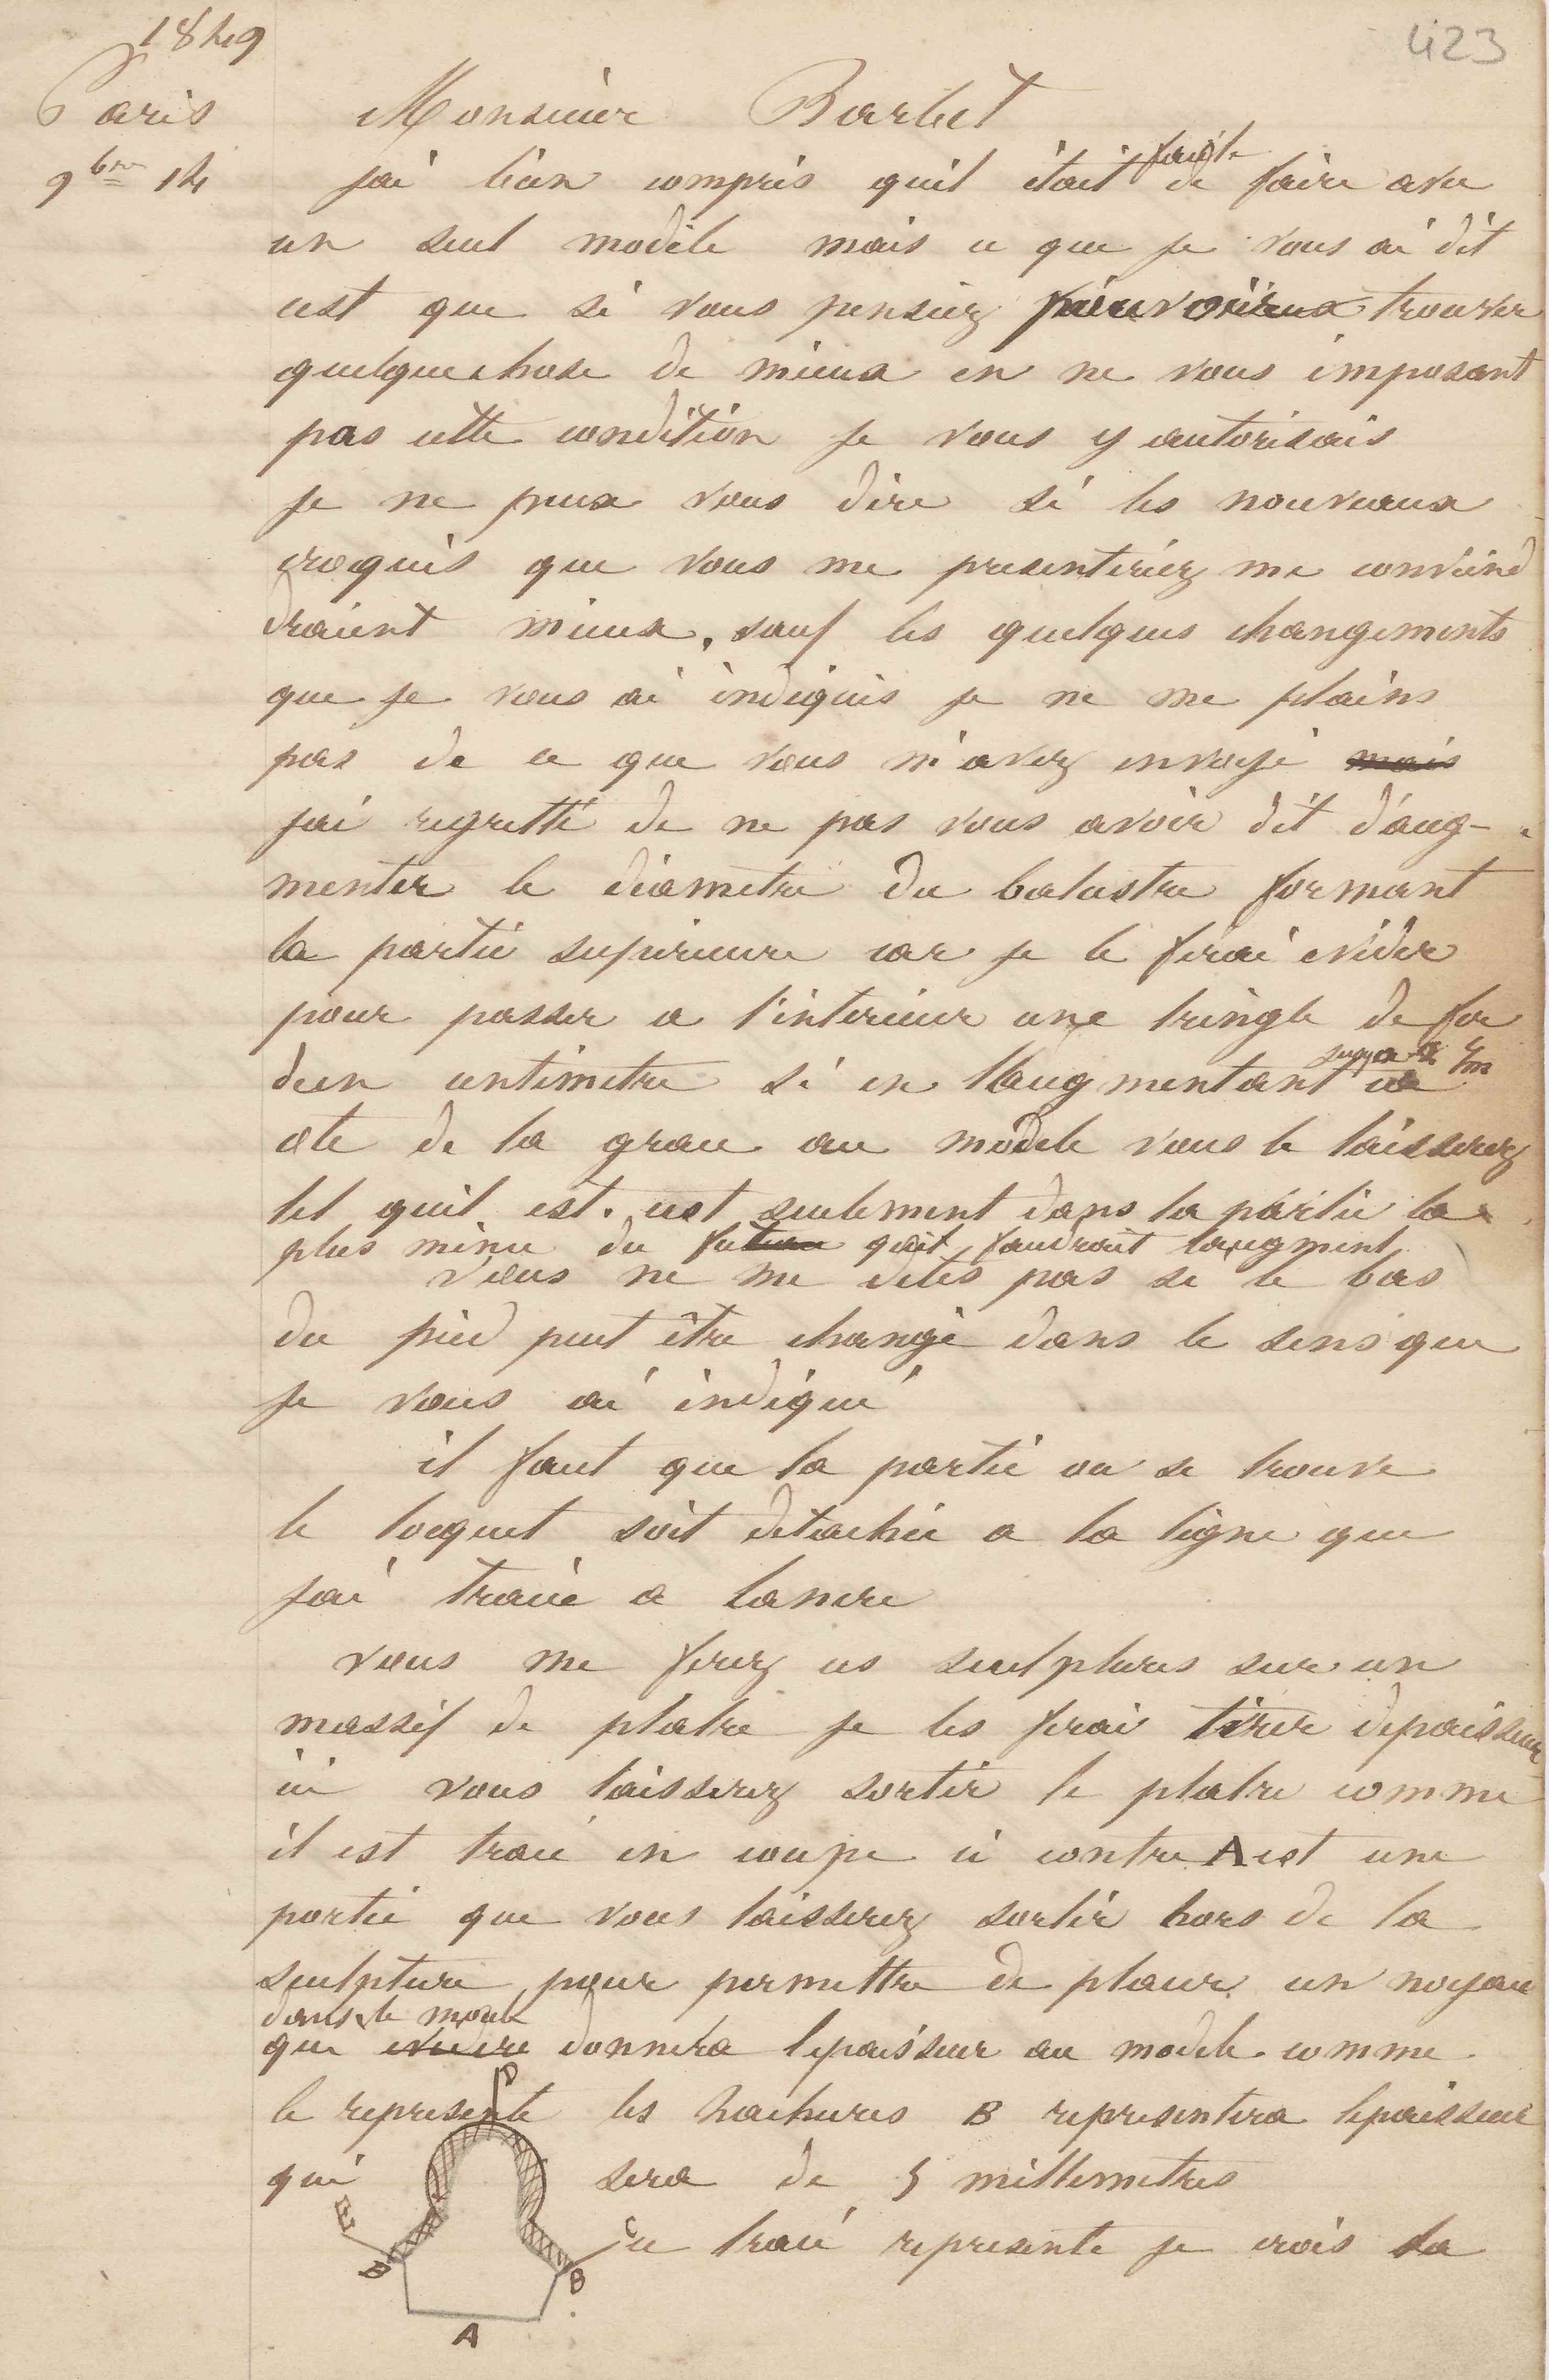 1849
423
Paris
9bre 14
Monsieur Barbet
jai bien compris quil était facile de faire avec
un seul modèle mais ce que je vous ai dit
cest que si vous pensiez trouver
quelquechose de mieux en ne vous imposant
pas cette condition je vous y autorisais
je ne peux vous dire si les nouveaux
croquis que vous me presenteriez me conviend
draient mieux, sauf les quelques changements
que je vous ai indiqués je ne me plains
pas de ce que vous m'avez envoyé mais
jai regretté de ne pas vous avoir dit d'aug-
menter le diametre du balustre formant
la partie superieure car je le ferai evider
pour passer a l'interieur une tringle de fer
dun centimetre si en l'augmentant ca
ote de la grace au modele vous le laisserez
tel quil est. cest seulement dans la partie la
plus menu du quil faudrait laugment
vous ne me dites pas si le bas
du pied peut être changé dans le sens que
je vous ai indiqué
il faut que la partie ou se trouve
le loquet soit detachée a la ligne que
jai tracée a lancre
vous me ferez ces sculptures sur un
massif de platre je les ferai tirer depaisseur
ici vous laisserez sortir le platre comme
il est tracé en coupe ci contre A est une
partie que vous laisserez sortir hors de la
sculpture pour permettre de placer un noyau
dans le moule
qui evidere donnera lepaisseur au modele comme
le represente les hachures B representera lepaisseur
qui sera de 5 millemetres
ce tracé represente je crois la
D
E
C
B
B
A